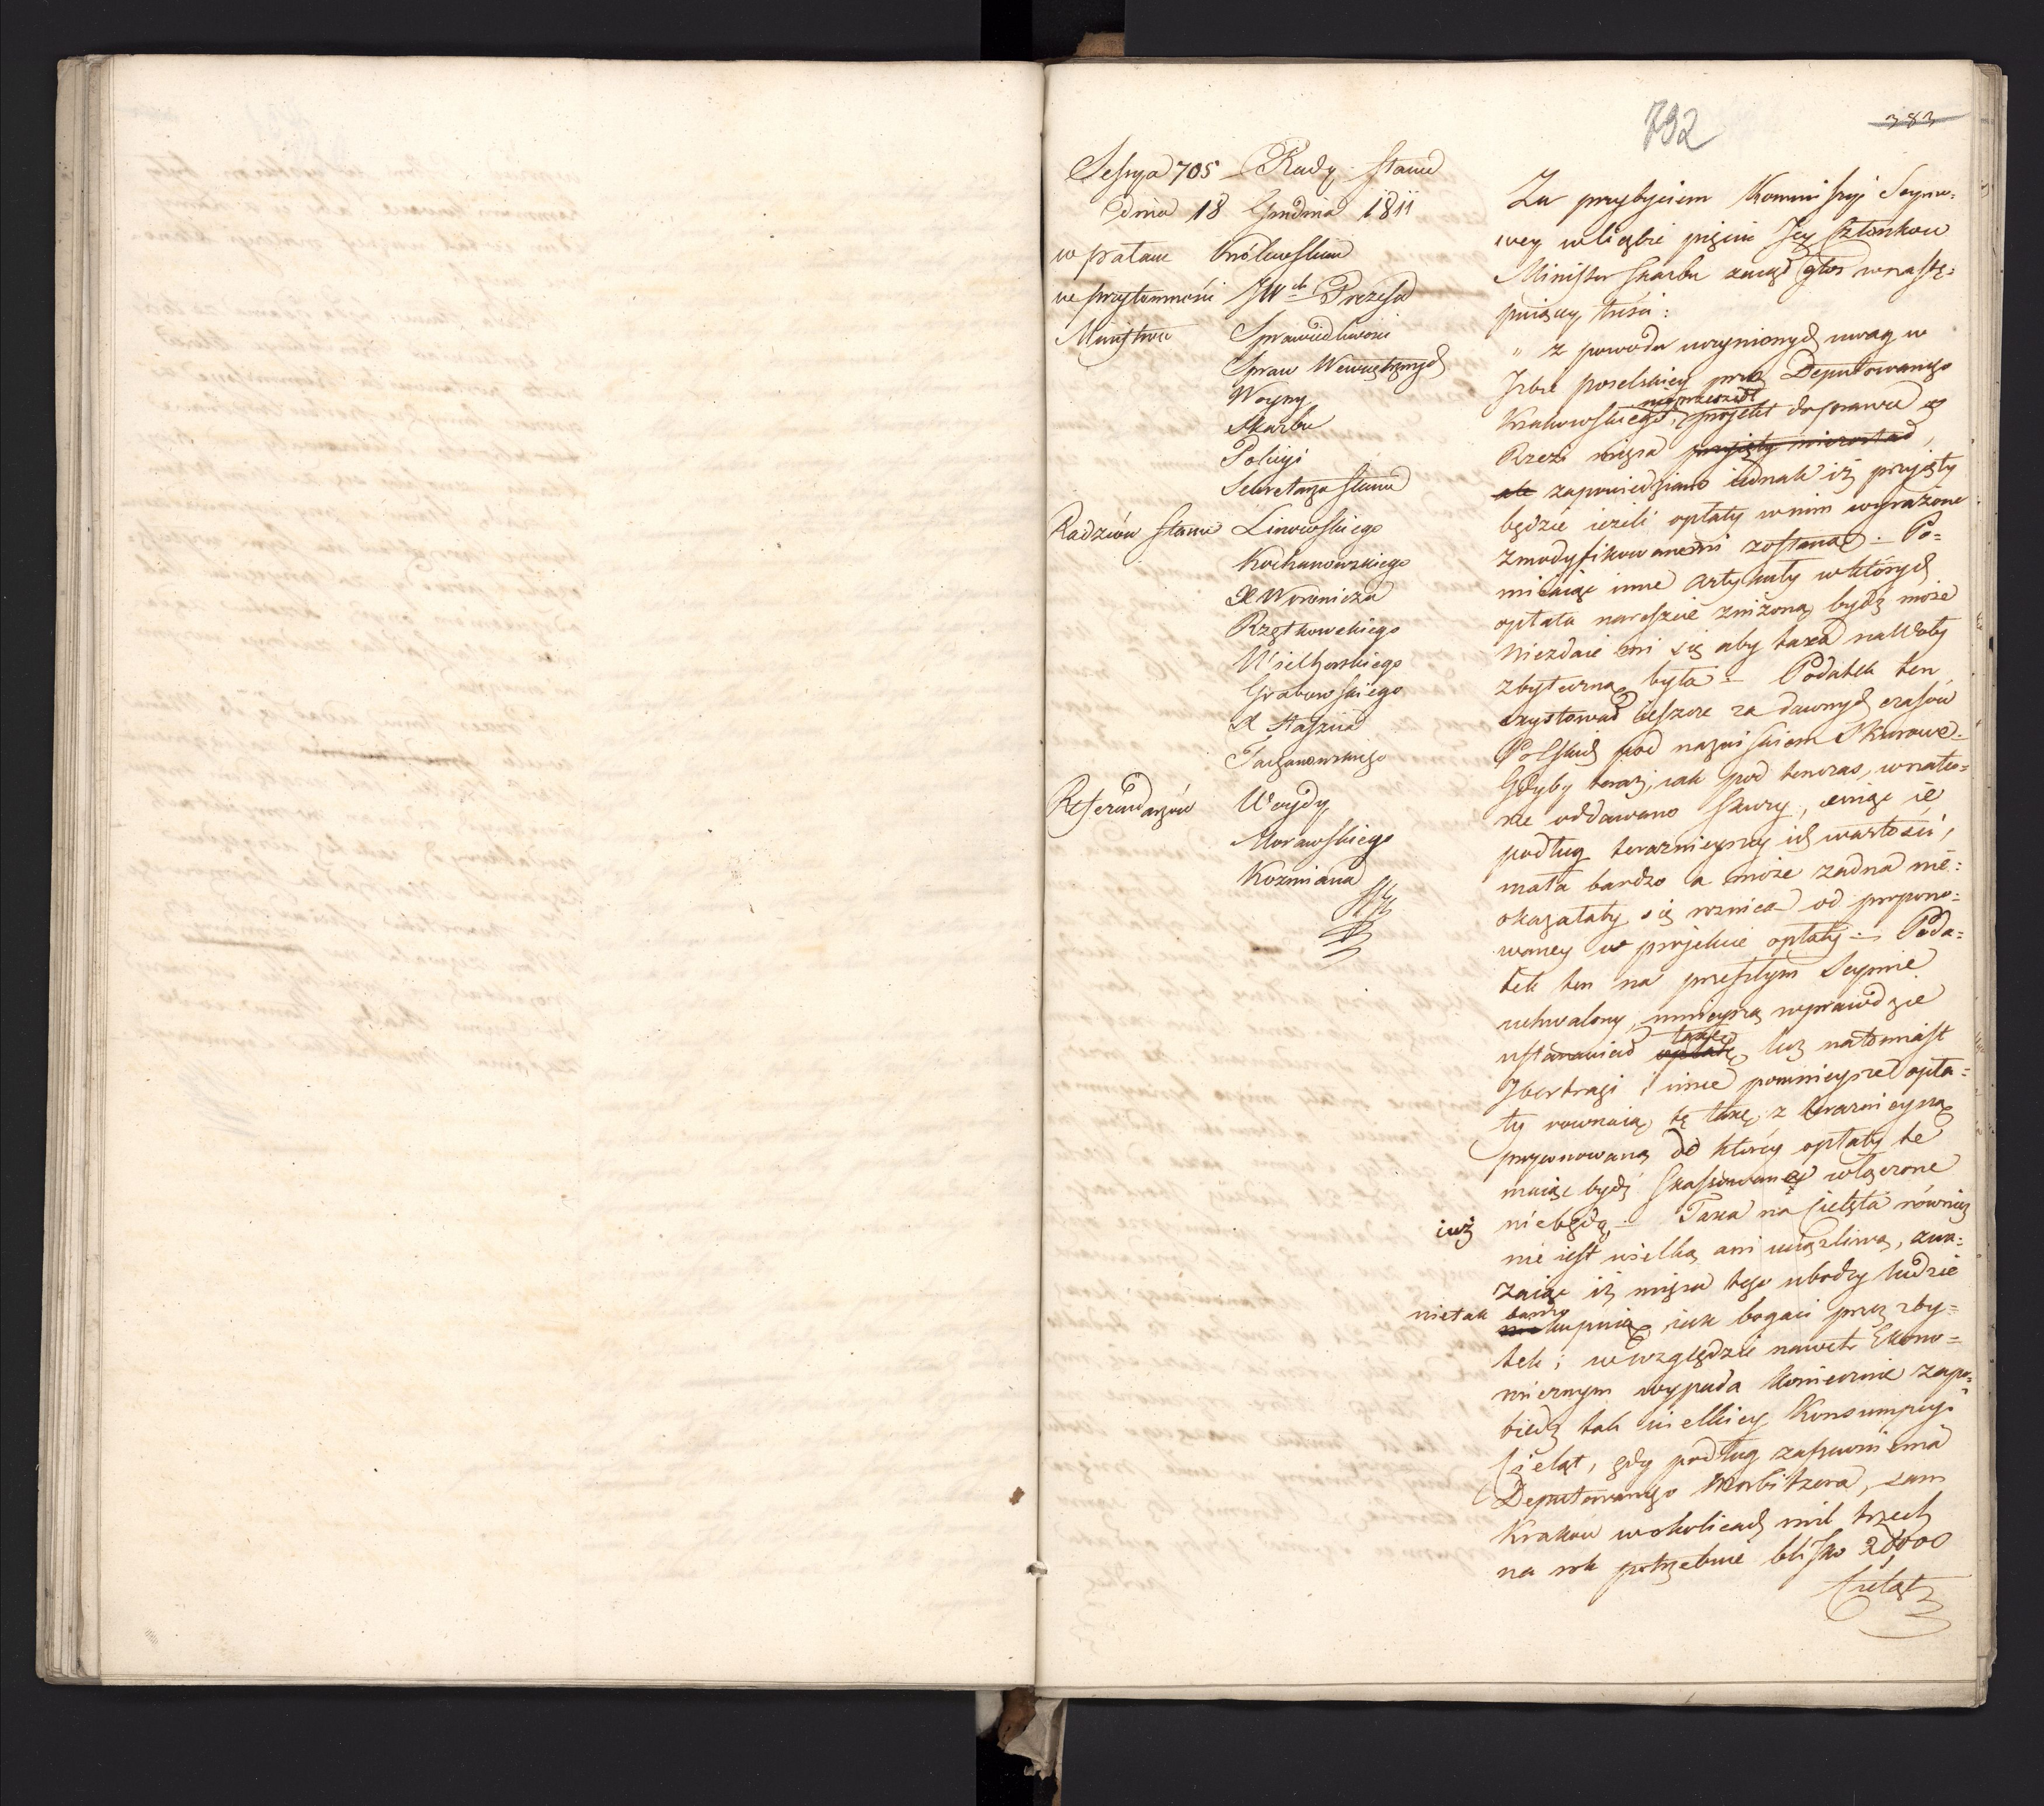 792
383
Sessya 705 Rady Stanu
Dnia 18 Grudnia 1811
w pałacu Królewskim
w przytomności JWch Prezesa
Ministrów Sprawiedliwości
Spraw Wewnętrznych
Woyny
Skarbu
Policyi
Sekretarza Stanu
Radzców Stanu Linowskiego
Kochanowskiego
X Woronicza
Rzętkowskiego
Wielhorskiego
Grabowskiego
X Staszica
Referendarzów Woydy
Morawskiego
Kozmiana
Za przybyciem Kommissyi Seymo=
wey w liczbie pięciu Jey Członkow
Minister Skarbu zaczął głos w nastę=
puiący treści:
" z powodu uczynionych uwag w
Izbie poselskiey przez Deputowanego
nieprzeszedł
Krakowskiego, projekt do prawa o
Rzezi mięsa przyięty niezostał,
ale zapowiedziano iednak iż przyięty
będzie ieżeli opłaty w nim wyrażone
zmodyfikowanemi zostaną. Po=
miiaiąc inne artykuły w których
opłata nareszcie zniżoną bydź może
niezdaie mi się aby taxa na Woły
zbyteczną była – Podatek ten
exystował ieszcze za dawnych czasów
Polskich pod nazwiskiem Skurowe.
Gdyby teraz, iak pod tenczas, w natu=
rze oddawano skury, ceniąc ie
podług teraznieyszey ich wartości,
mała bardzo a może żadna nie=
okazałaby się roznica od propono=
waney w projekcie opłaty – Poda=
tek ten na przeszłym Seymie
uchwalony, mnieyszą wprawdzie
taxę
ustanawiał opłatę, lecz natomiast
Zbertragi i inne pomnieysze opła=
ty rownaią tę taxę z teraznieyszą
proponowaną do którey opłaty te
maiąc bydź skassowanę włączone
iuż niebędą – Taxa na Cielęta również
nie iest wielką ani uciążliwą, zwa=
żaiąc iż mięsa tego ubodzy ludzie
nietak bardzo
nie kupuią iak bogaci przez zby=
tek; w względzie nawet Ekono=
micznym wypada koniecznie zapo=
biedz tak wielkiey Konsumpcyi
Cieląt, gdy podług zapewnienia
Deputowanego Morbitzera, sam
Kraków w okolicach mil trzech
na rok potrzebuie blisko 20,000
Cieląt